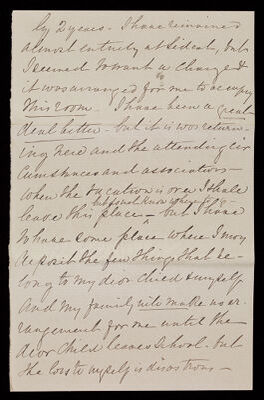 by 2 years - I have remained
almost entirely at Sidcot, but
I seemed to want a change &
it was arranged for me to occupy
this room. I have been a great
deal better - but it is now return-
ing here and the attending cir
cumstances and associations
When the vacation is over I shall
but I must know where to go
leave this place - but I have
to have some place where I may
deposit the few things that be-
long to my dear child & myself
And my family make no ar-
rangement for me until the
dear child leaves School. but
the loss to myself is disastrous -